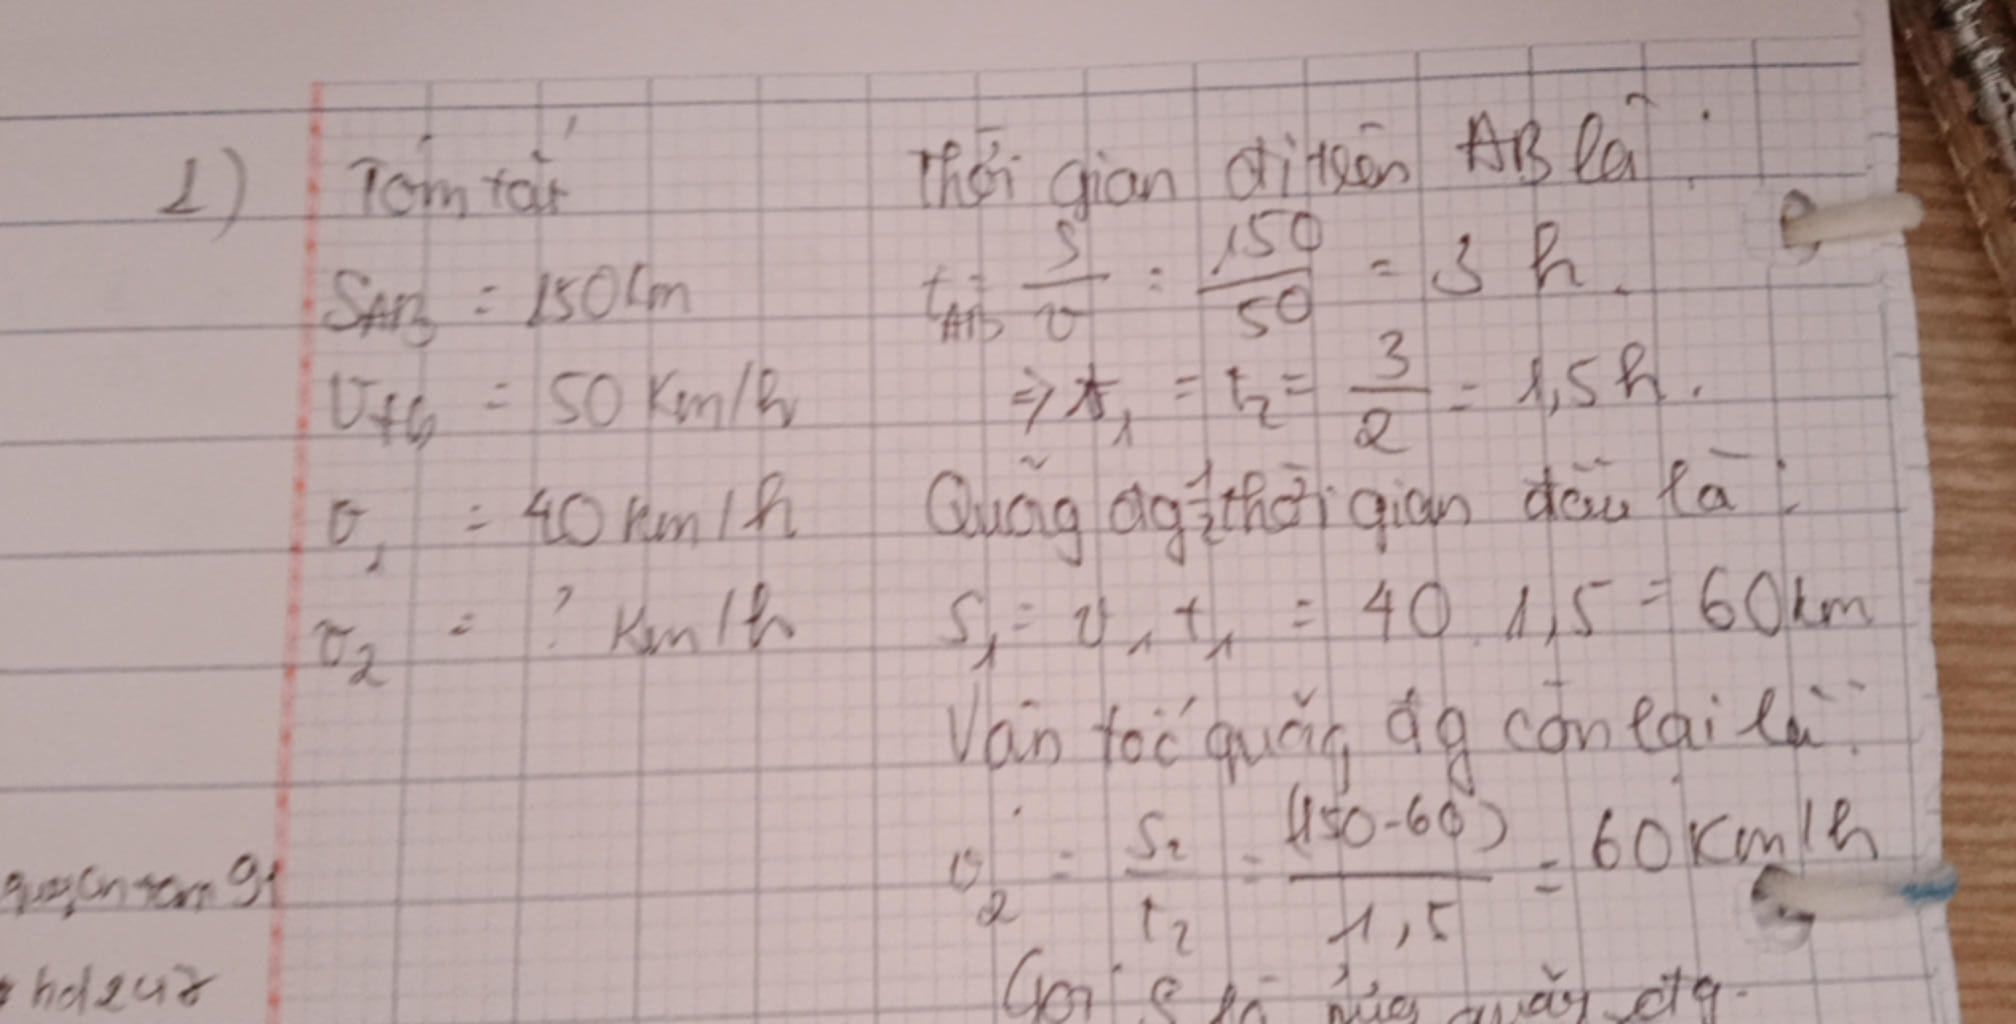 1)
Tóm tắt
S_AB = 150km
v_tb = 50 Km/h
v_1 = 40 km/h
v_2 = ? Km/h
Thời gian đi trên AB là:
t_AB = S/v = 150/50 = 3 h.
=> t_1 = t_2 = 3/2 = 1,5h.
Quãng đg 1/2 thời gian đầu là:
S_1 = v_1 t_1 = 40.1,5 = 60km
Vận tốc quãng đg còn lại là:
v_2 = S_2/t_2 = (150-60)/1,5 = 60 Km/h
Gọi S là nửa quãng đg.
hd247